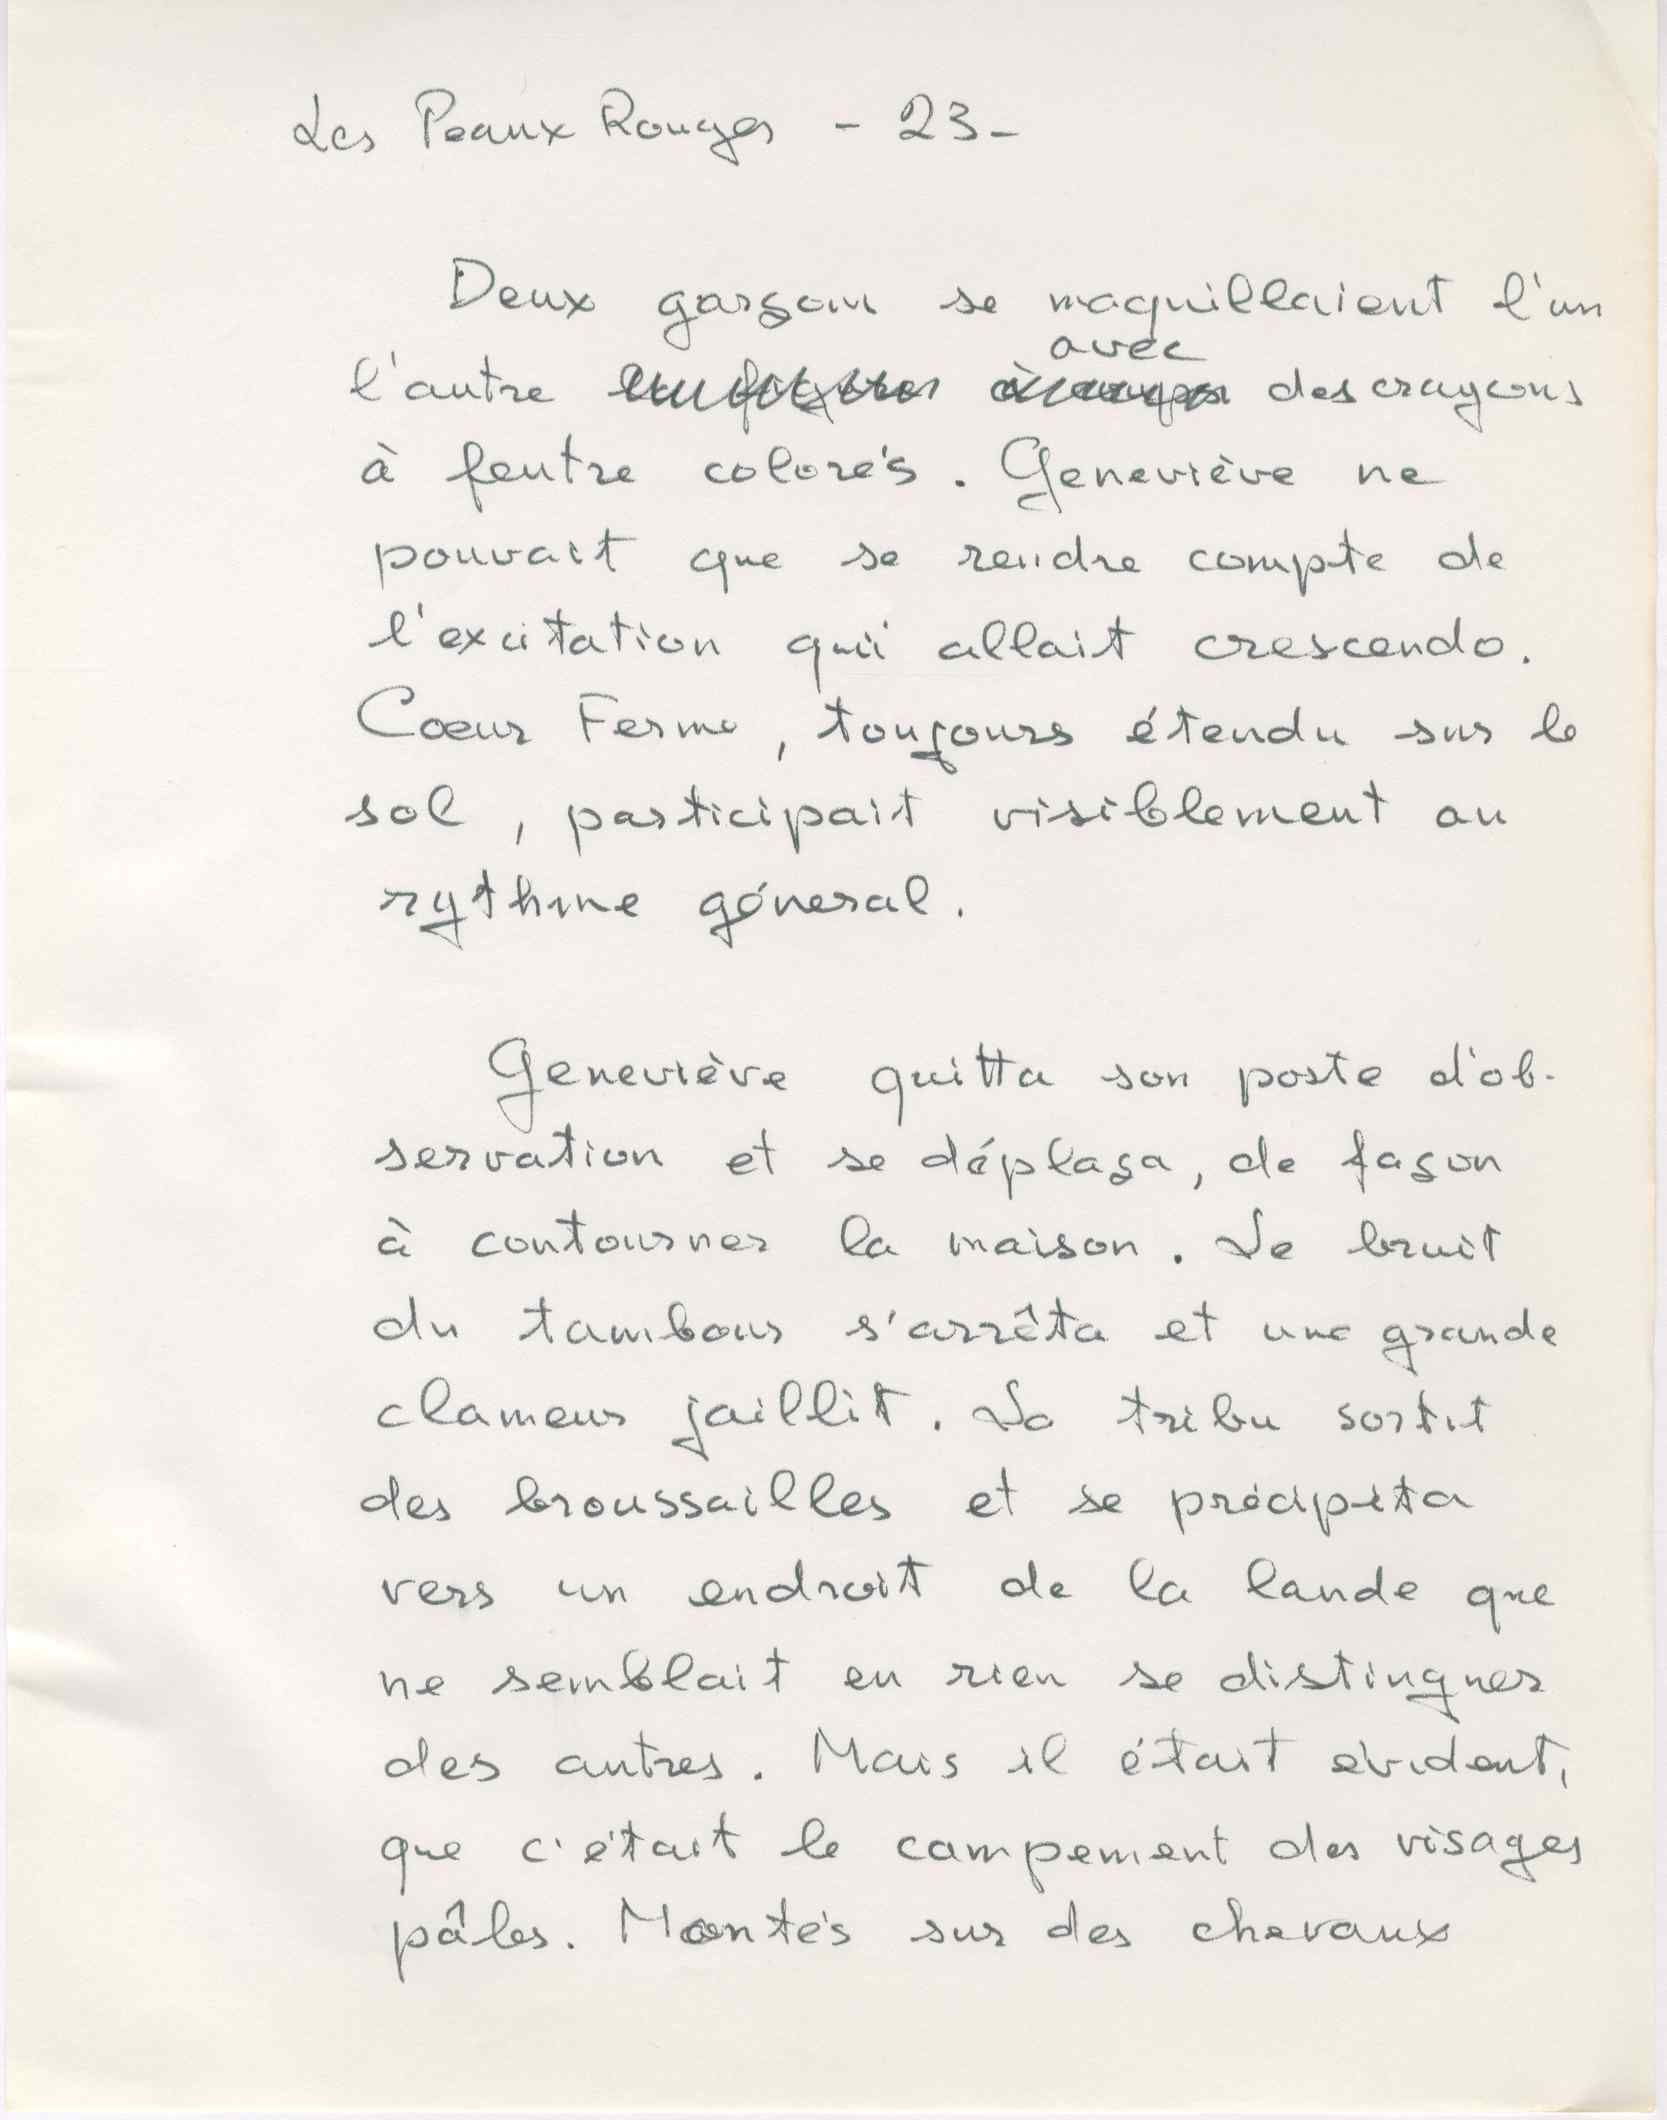 Les Peaux Rouges - 23-
Deux garçons se maquillaient l'un
avec
l'autre des crayons
à feutre colorés. Geneviève ne
pouvait que se rendre compte de
l'excitation qui allait crescendo.
Cœur Ferme, toujours étendu sur le
sol, participait visiblement au
rythme géneral.
Geneviève quitta son poste d'ob-
servation et se déplaça, de façon
à contourner la maison. Le bruit
du tambour s'arrêta et une grande
clameur jaillit. La tribu sortit
des broussailles et se précipita
vers un endroit de la lande que
ne semblait en rien se distinguer
des autres. Mais il était évident,
que c'était le campement des visages
pâles. Montés sur des chevaux